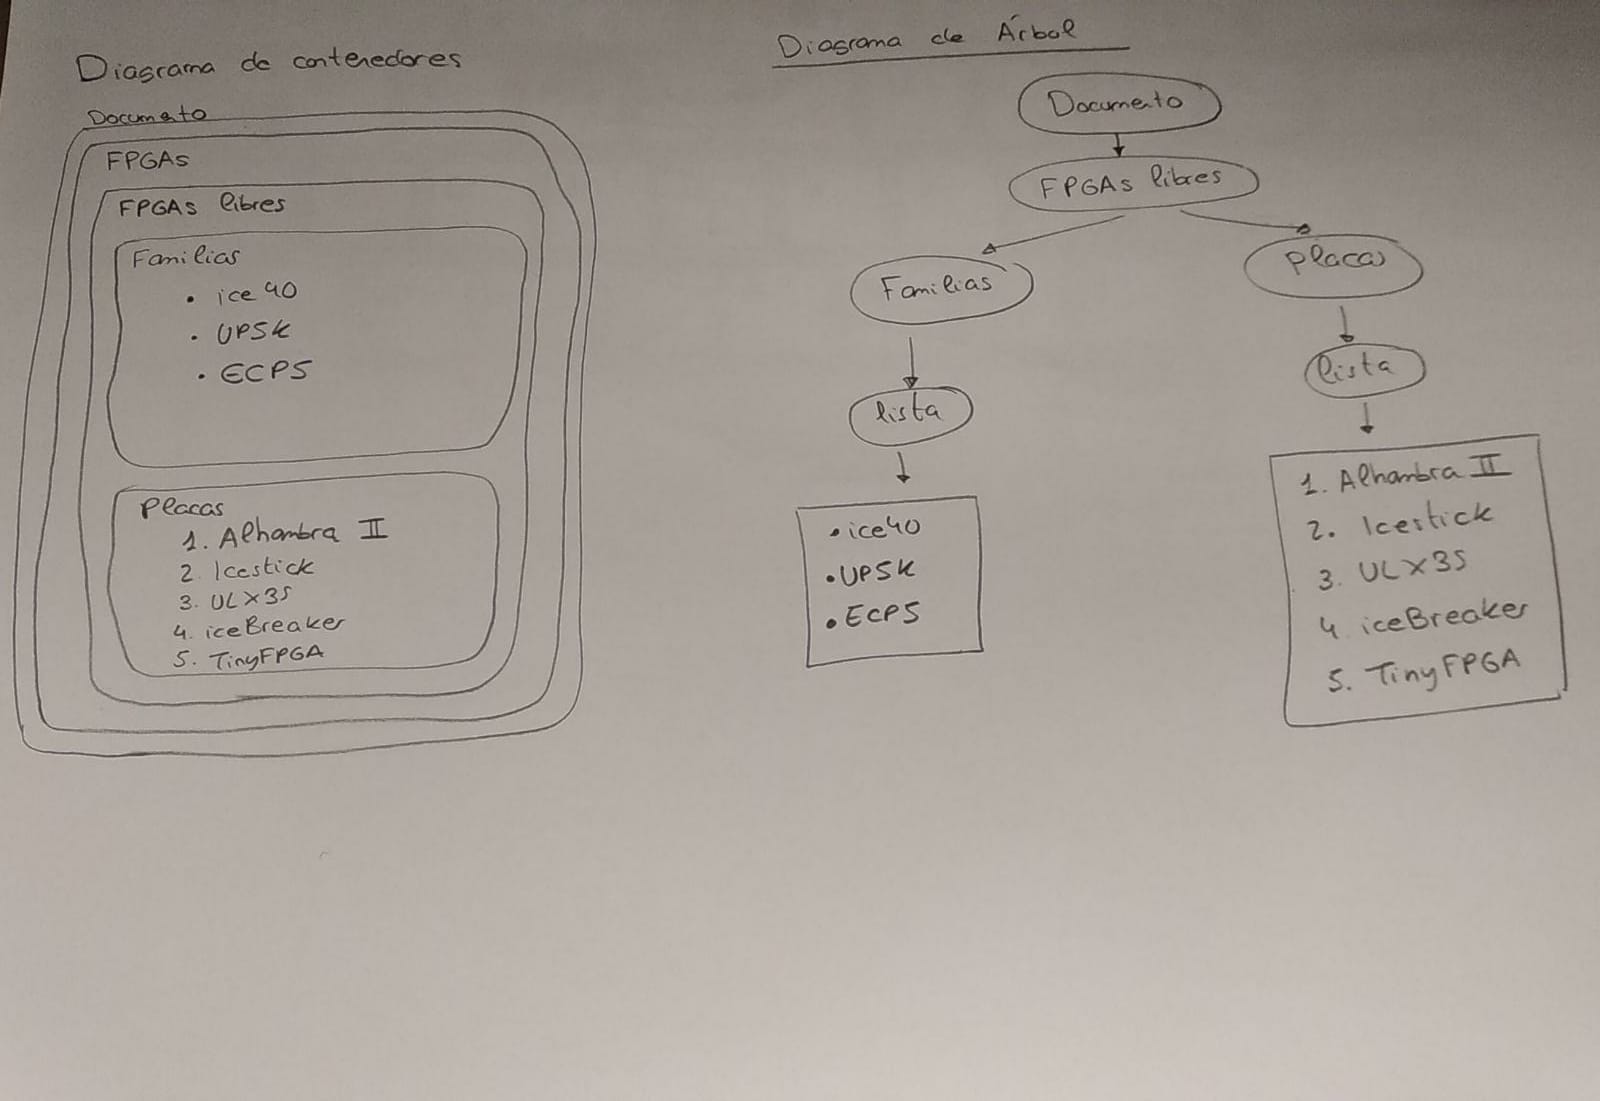 Diagrama de contenedores
Documento
FPGAs
FPGAs libres
Familias
• ice40
• UP5K
• ECP5
Placas
1. Alhambra II
2. Icestick
3. ULX3S
4. iceBreaker
5. TinyFPGA
Diagrama de Árbol
Documento
FPGAs libres
Familias
lista
• ice40
• UP5K
• ECP5
Placas
lista
1. Alhambra II
2. Icestick
3. ULX3S
4 iceBreaker
5. TinyFPGA